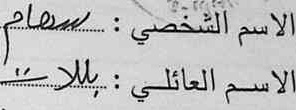 الاسم الشخصي : سهام
الاسم العائلي : بللات